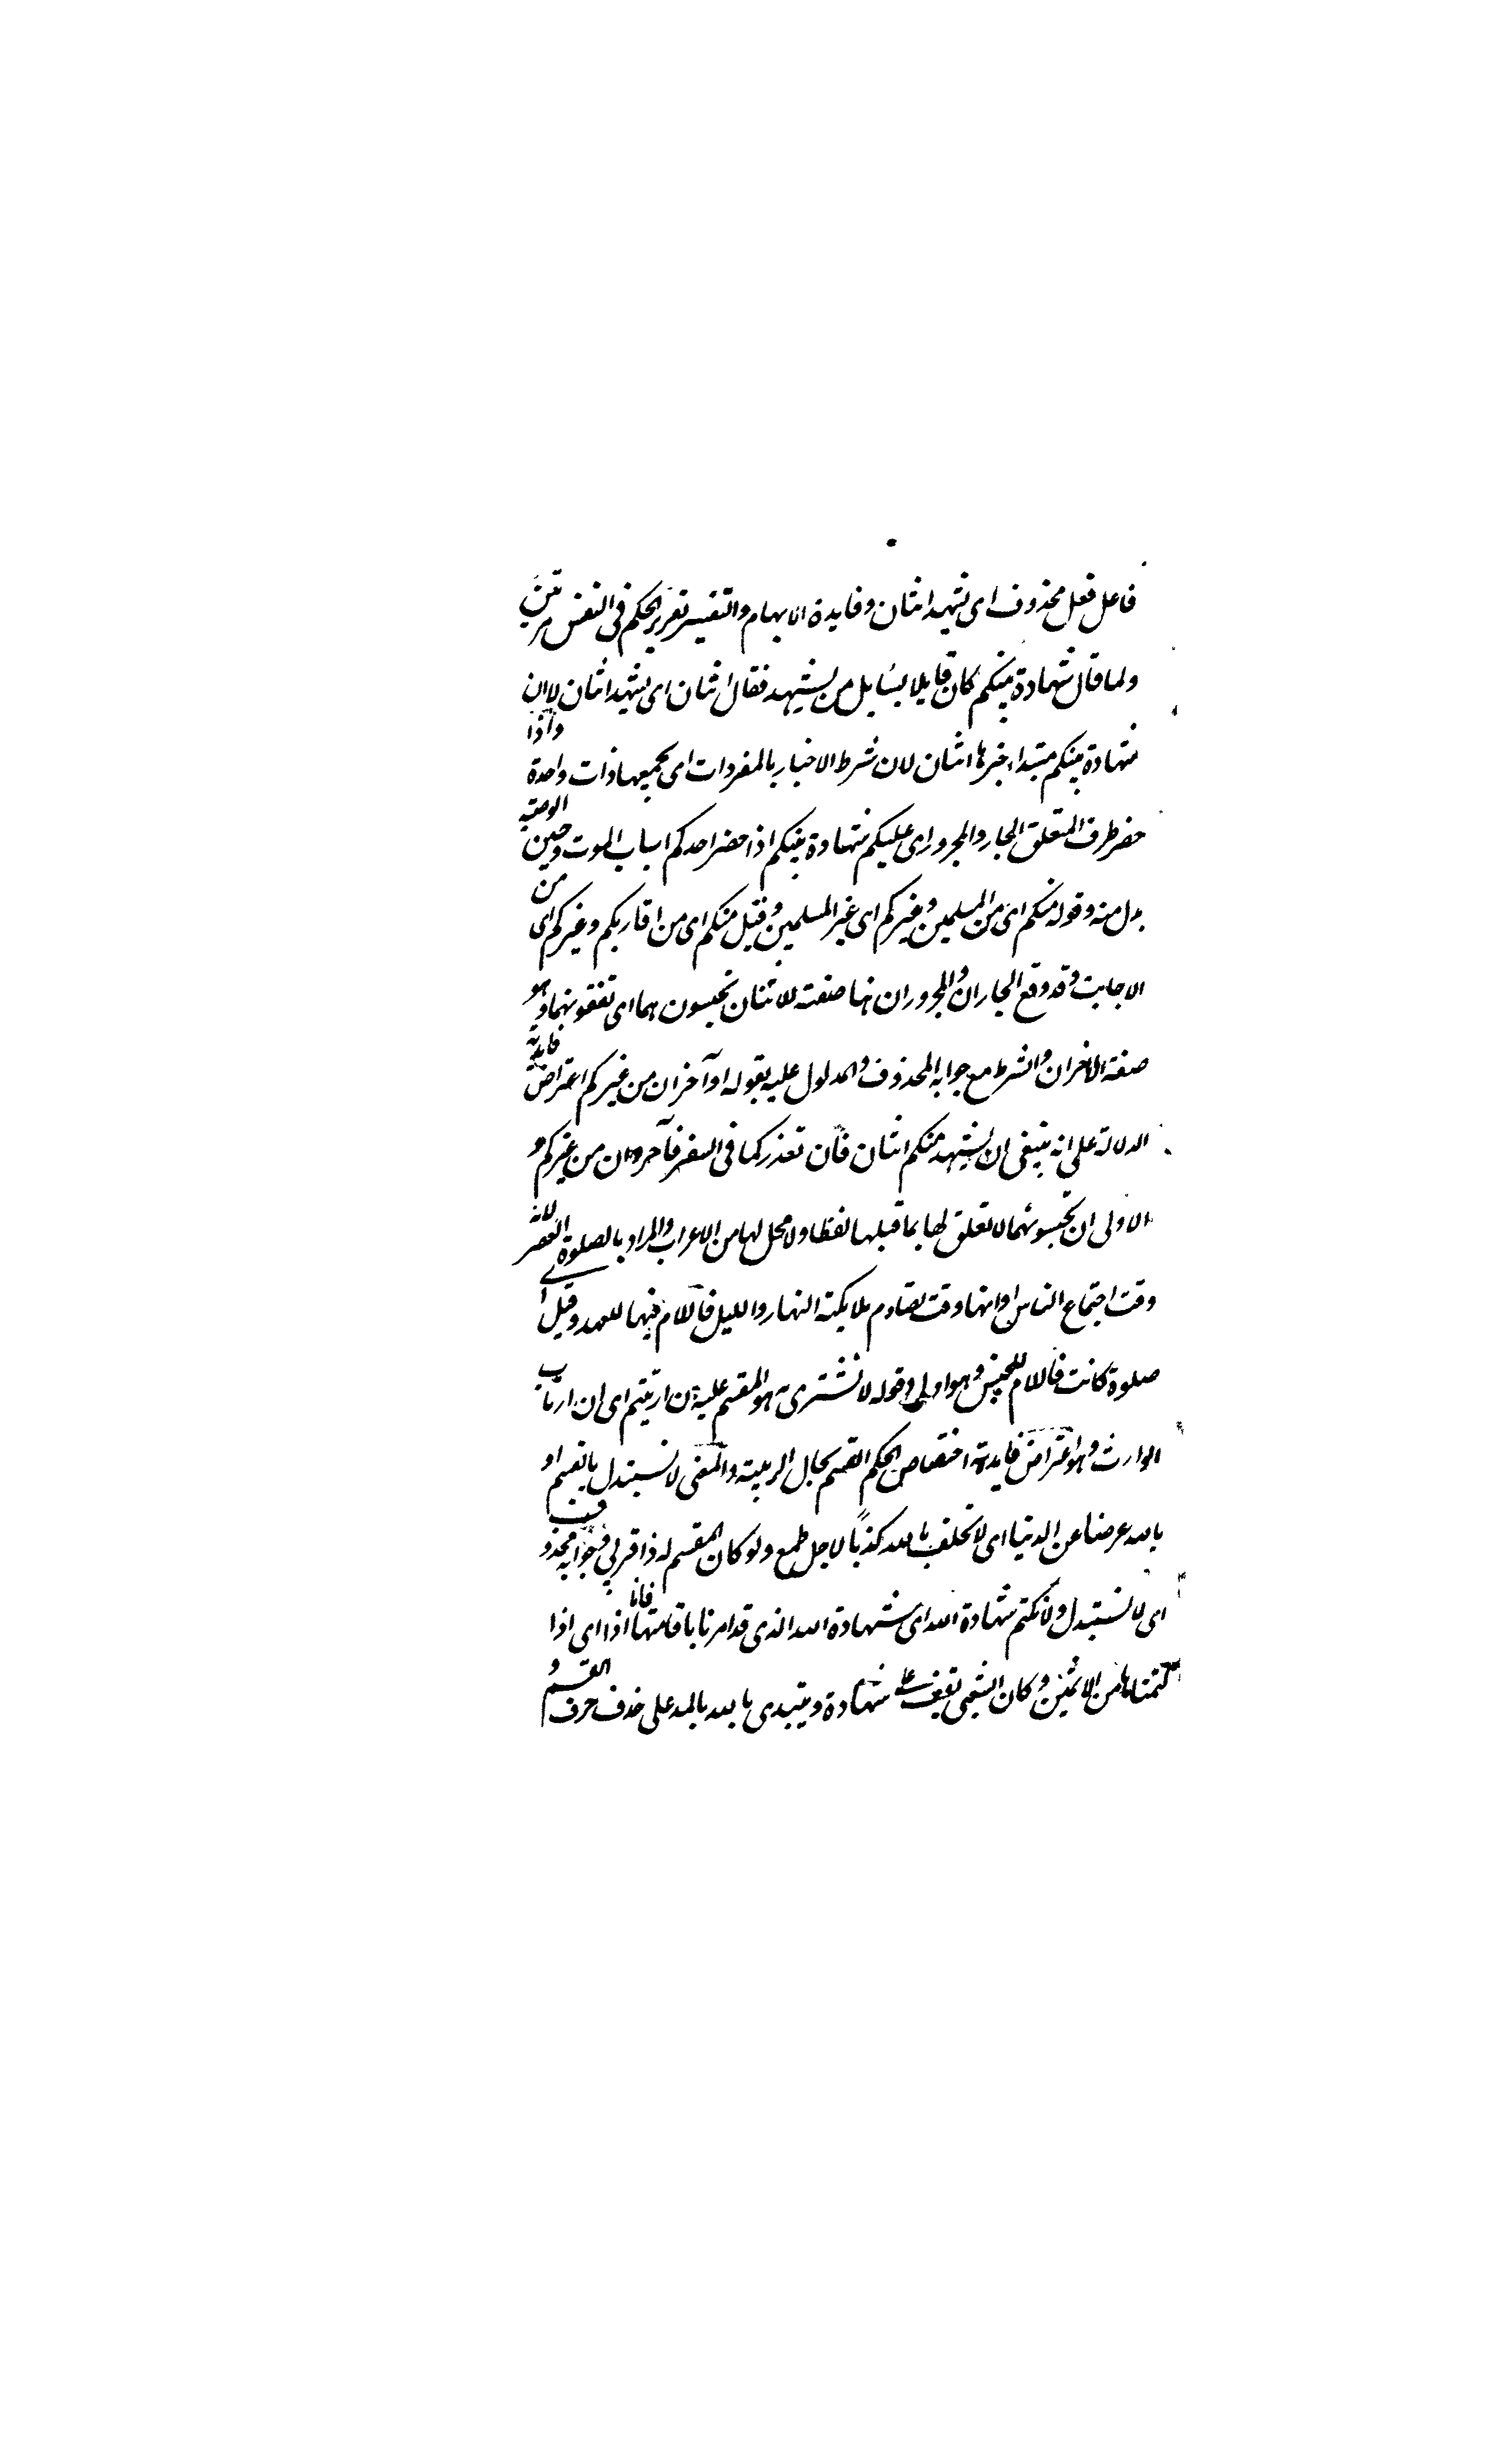 فاعل فعل محذوف اى يشهد اثنان وفايدة الابهام والتفسير تقرير الحكم فى النفس مرتين
ولما قال شهادة بينكم كان قايلا يسايل من يستشهد فقال اثنان اى يشهد اثنان لا ان
شهادة بينكم مبتداء خبرها اثنان لان شرط الاخبار بالمفردات اى يجمعها ذات واحدة واذا
حضر ظرف المتعلق الجار والمجرور اى عليكم شهادة بينكم اذا حضر احدكم اسباب الموت وحين الوصية
بدل منه وقوله منكم اى من المسلمين وغيركم اى غير المسلمين وقيل منكم اى من اقاربكم وغيركم اى من
الاجانب وقد وقع الجاران والمجروران هنا صفة للاثنان تحبسون هما اى تقفونهما وهو
صفة الاخران والشرط مع جوابه المحذوف والمدلول عليه بقوله او آخران من غيركم اعتراض فايدته
الدلالة على انه ينبغى ان يستشهد منكم اثنان فان تعذر كما فى السفر فآخران من غيركم و
الاولى ان تحبسونهما لا تعلق لها بما قبلها لفظا ولا محل لها من الاعراب والمراد بالصلوة العصر لانه
وقت اجتماع الناس او انها وقت تصادم ملايكة النهار والليل فاللام فيها للعهد وقيل اى
صلوة كانت فاللام للجنس وهو اولى وقوله لا نشترى به هو المقسم عليه ان ارتبتم اى ان ارتاب
الوارث وهو اعتراض فايدته اختصاص الحكم القسم بحال الريبة والمعنى لا نستبدل بالقسم او
بالله عرضا عن الدنيا اى لا نحلف بالله كذبًا لاجل طمع ولو كان المقسم له ذا قربى فجوابه محذوف
اى لا نستبدل ولا نكتم شهادة الله اى شهادة الله الذى قد امرنا باقامتها فانا اذا اى اذا
كتمناها من الاثمين وكان الشعبى يقف على شهادة ويبتدى بالله بالمد على حذف حرف القسم و